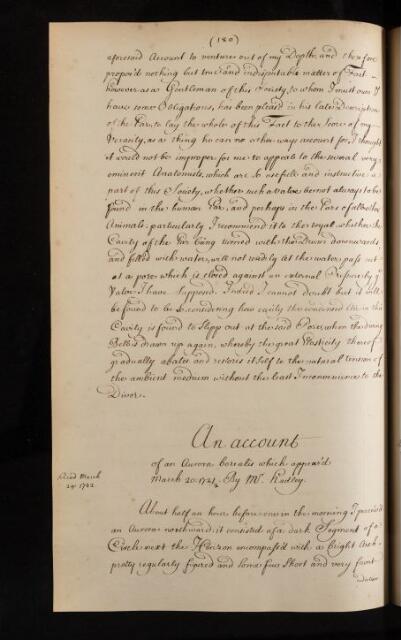 (180)
aforesaid Account to venture out of my Depth, and therefore
propos'd nothing but true and indisputable matter of Fact
however as a Gentleman of this Society, to whom I must own I
have some Obligations, has been pleas'd in his late Description
of the Ear, to lay the whole of this Fact to the Score of my
Veracity, as a thing he can no other ways account for, I thought
it would not be improper for me to appeale to the several very
eminent Anatomists, which are so usefull and instructive a
part of this Society, whether such a Valve be not always to be
found in the human Ear, and perhaps in the Ears of all other
Animals, particularly I recommend it to the tryal, whether the
Cavity of the Ear being turned with the Drum downwards,
and filled with water, will not readily let the water pass out
at a pore which is closed against an external Pressure by ye
Valve I have suppos'd. Indeed I cannot doubt but it will
be found to be so, considering how easily the condensed Air in the
Cavity is found to slipp out at the said Pore, when the diving
Bell is drawn up again, whereby the great Elasticity thereof
gradually abates and restores itself to the natural tension of
the ambient medium without the least Inconvenience to the
Diver.
An account
of an Aurora borealis which appear'd
March 20. 1721/2 By Mr. Hadley.
Read March
1722
About half an hour before one in the morning I perceiv'd
an Aurora northward; it consisted of a dark Segment of a
Circle next the Horizon encompassed with a bright Arch
pretty regularly figured and some few short and very faint